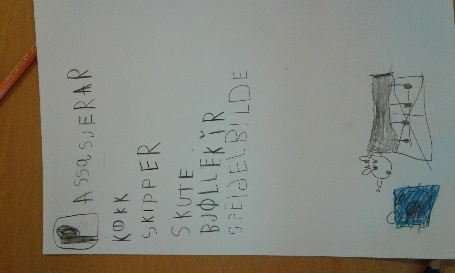 ASSOSJERAR
KOKK
SKIPPER
SKUTE
BJØLLEKIR
SPEIDELBILDE